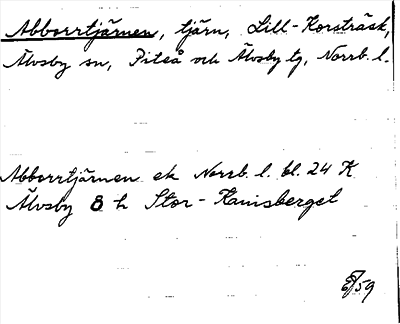 Abborrtjärnen, tjärn, Lill-Korsträsk,
Älvsby sn, Piteå och Älvsby tg, Norrb. l.
Abborrtjärnen ek Norrb. l. bl. 24 K
Älvsby 8 h Stor-Kanisberget
/59